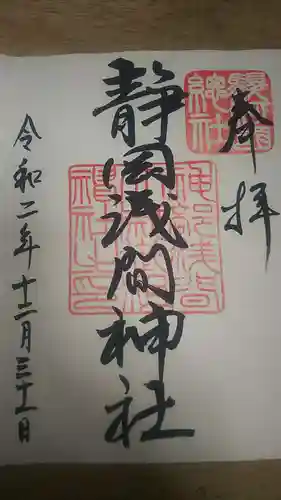 奉拝
駿河國總社
静岡浅間神社
令和二年十二月三十一日